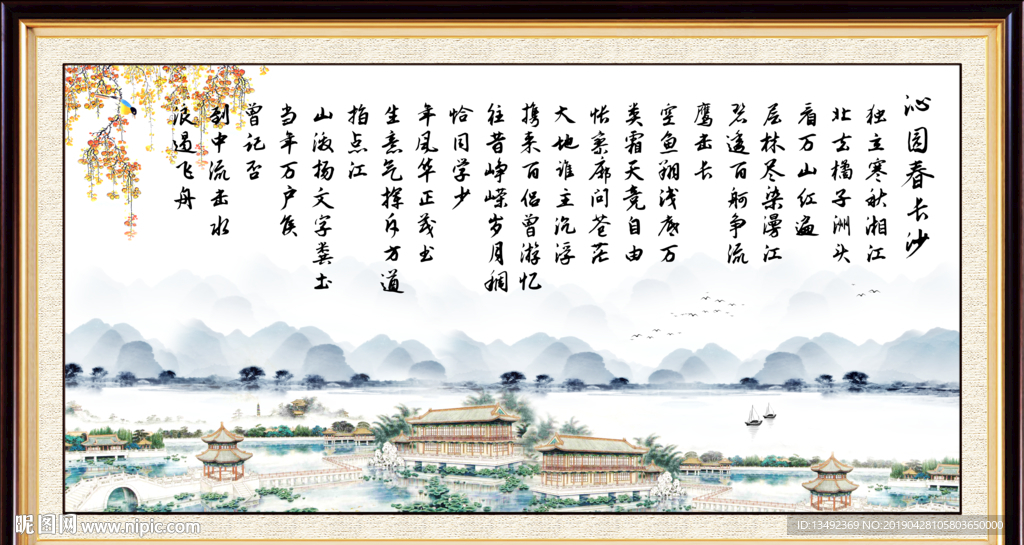 沁园春长沙
独立寒秋湘江
北去橘子洲头
看万山红遍
层林尽染漫江
碧透百舸争流
鹰击长
空鱼翔浅底万
类霜天竞自由
怅寥廓问苍茫
大地谁主沉浮
携来百侣曾游忆
往昔峥嵘岁月稠
恰同学少
年风华正茂书
生意气挥斥方遒
指点江
山激扬文字粪土
当年万户侯
曾记否
到中流击水
浪遏飞舟
昵图网 www.nipic.com
ID:13492369 NO:20190428105803650000